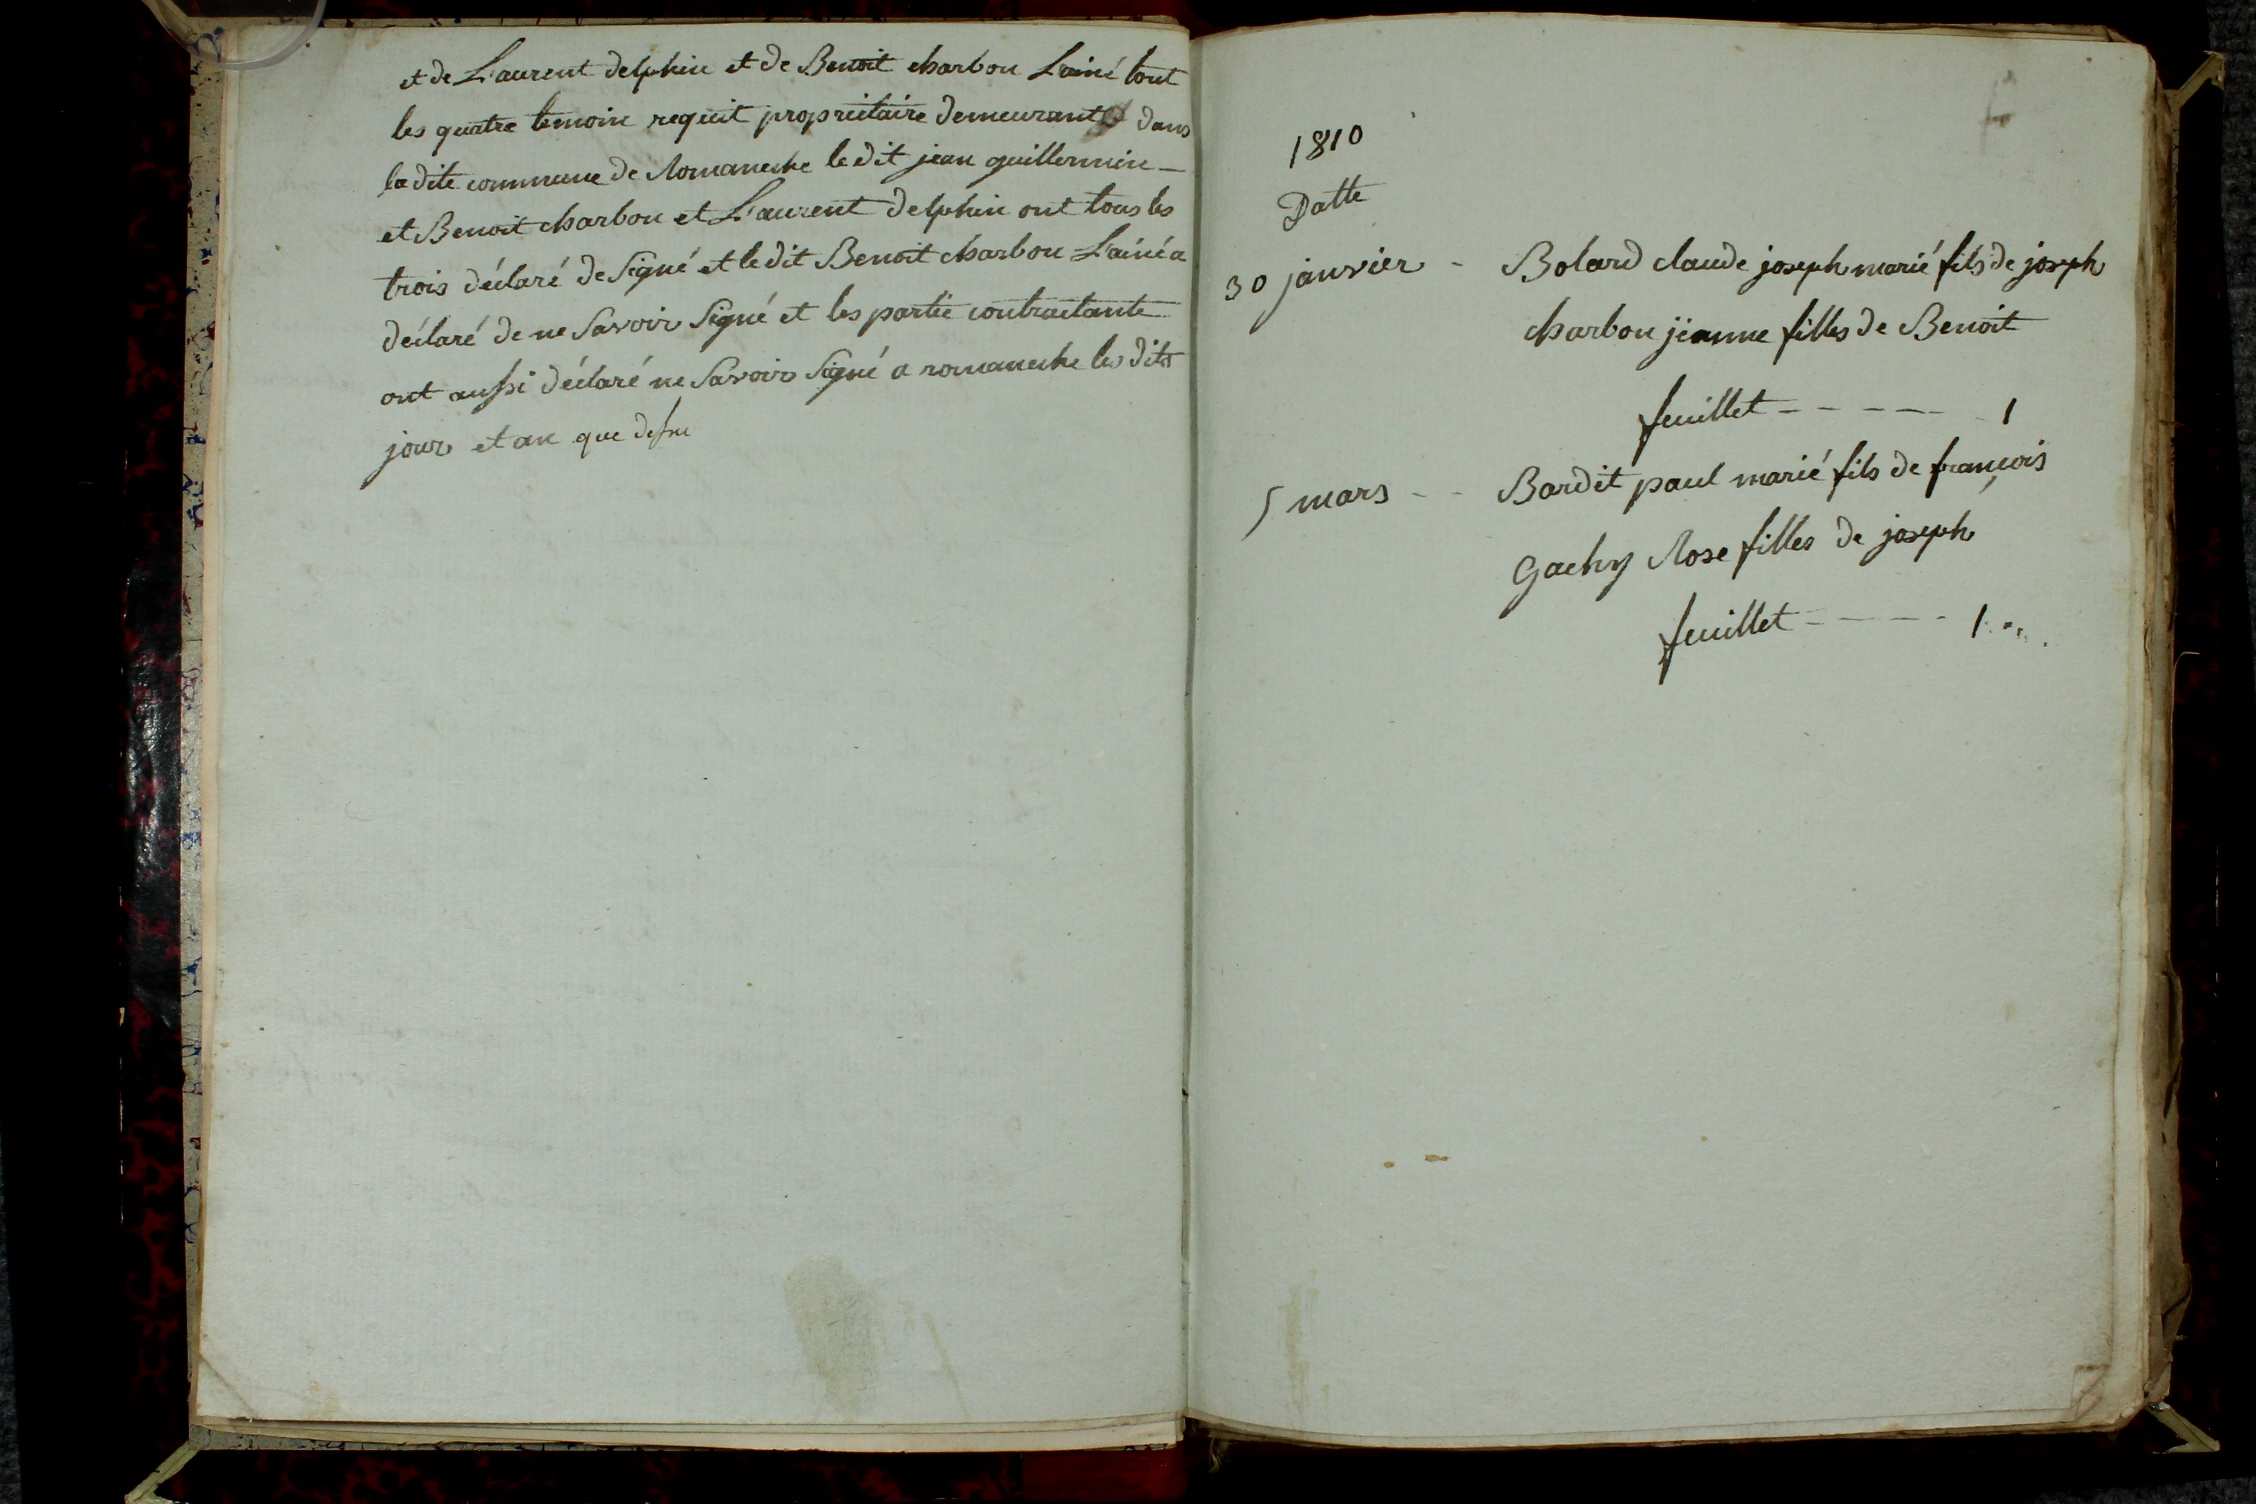 et de Laurent delphin et de Benoit charbon Lainé tout
les quatre temoin requit propriétaire demeurant dans
la dite commune de Romaneche le dit jean guillermin
et Benoit charbon et Laurent delphin ont tous les
trois déclaré de Signé et le dit Benoit charbon Lainé a
déclaré de ne Savoir Signé et les partie contractante
ont aussi déclaré ne Savoir Signé a romaneche les dits
jour et an que dessu
1810
Datte
30 janvier - Bolard claude joseph marié fils de joseph
charbon jeanne filles de Benoit
feuillet - - - - - - 1
5 mars - - Bardit paul marié fils de françois
Gachy Rose filles de joseph
feuillet - - - - - 1